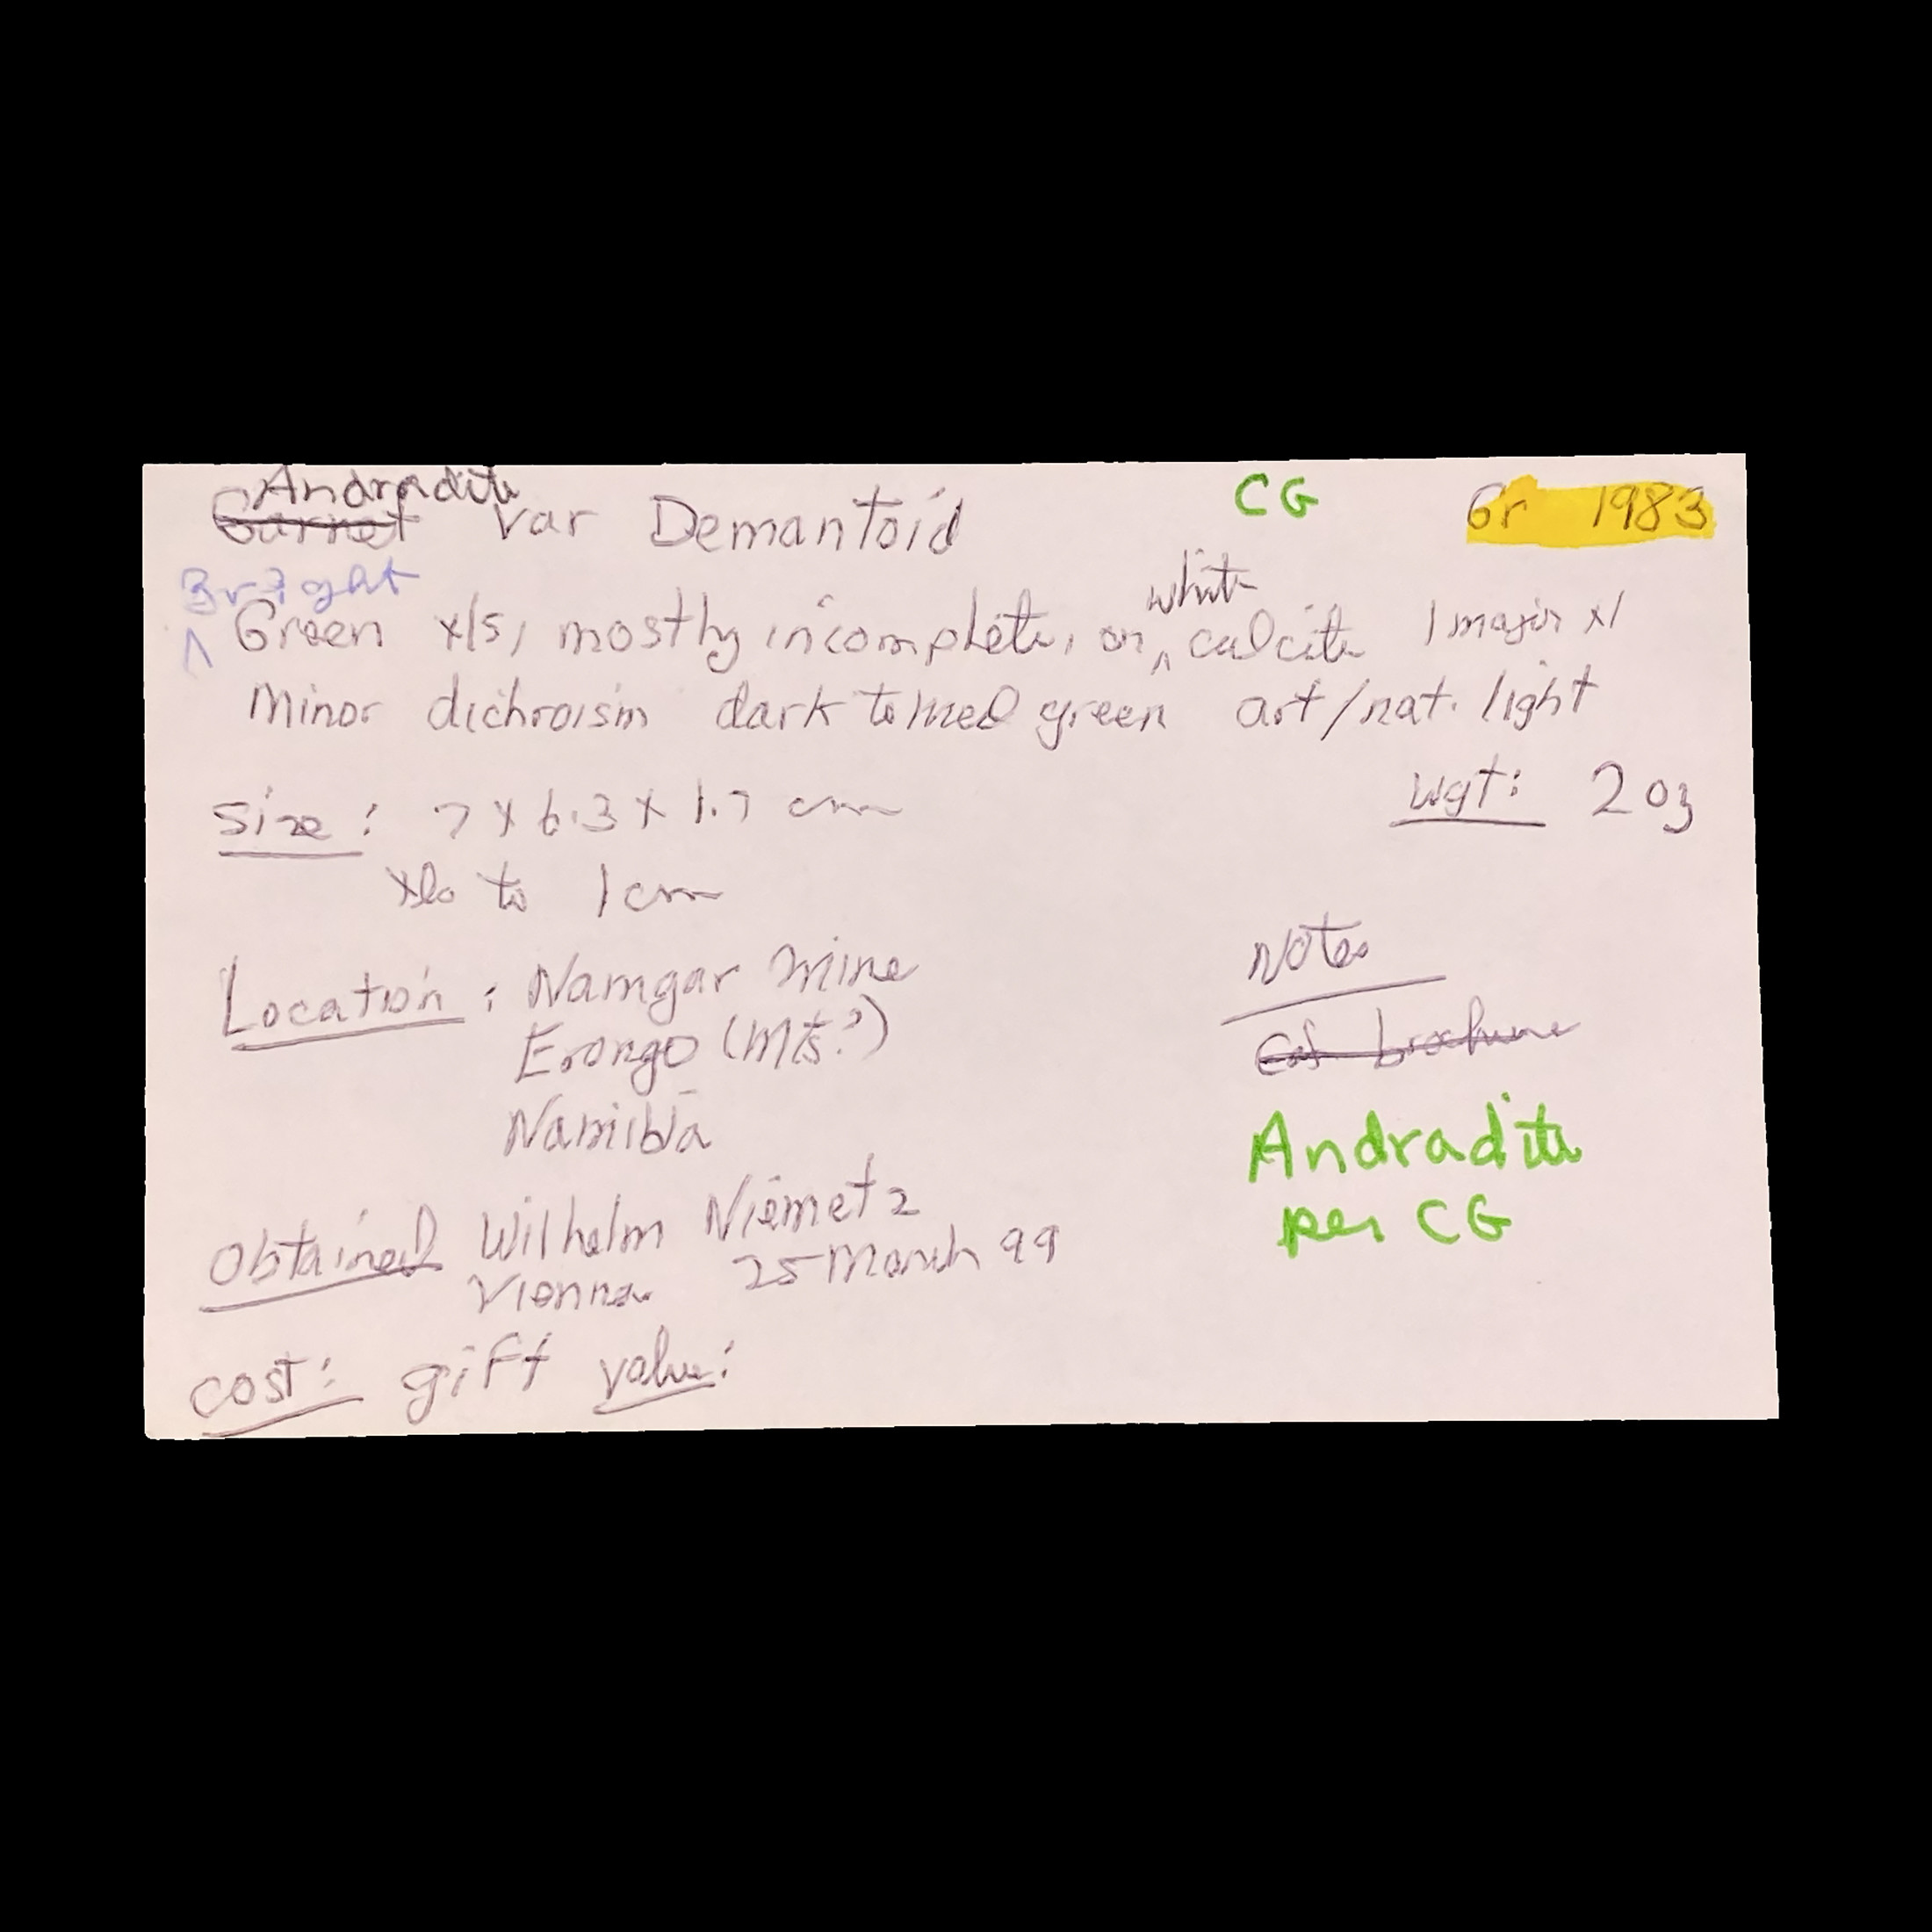 Andradite
Garnet var Demantoid CG Gr 1983
Bright
Green xls, mostly incomplete, on ^ white calcite 1 major xl
Minor dichroism dark to med green art/nat. light
Size: 7 x 6.3 x 1.7 cm Wgt: 2 oz
xls to 1 cm
Location: Namgar Mine
Erongo (Mts?)
Namibia
Obtained Wilhelm Niemetz
Vienna 25 March 99
Cost: gift value:
Notes
brochure
Andradite
per CG